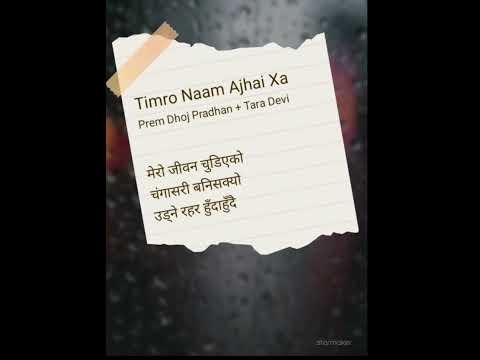 Timro Naam Ajhai Xa
Prem Dhoj Pradhan + Tara Devi
मेरो जीवन चुडिएको
चंगासरी बनिसक्यो
उड्ने रहर हुँदाहुँदै
starmaker